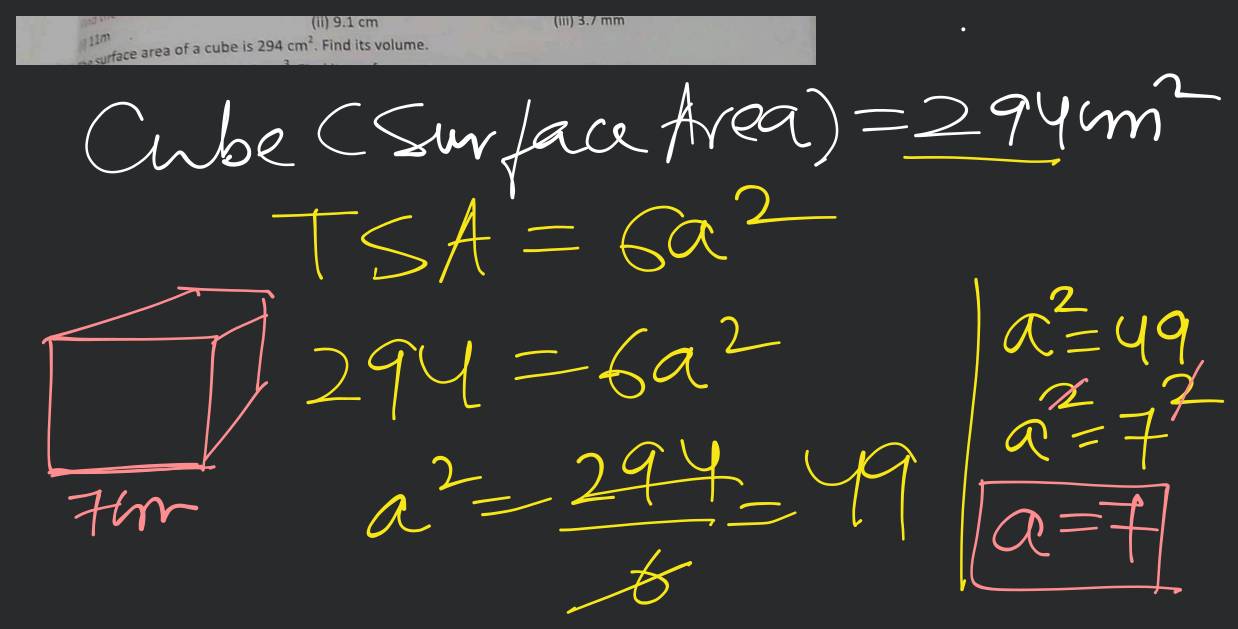 (ii) 9.1 cm (iii) 3.7 mm
11m
surface area of a cube is 294 cm². Find its volume.
Cube (Surface Area) = 294cm²
TSA = 6a²
294 = 6a²
a² = 294/6 = 49
7cm
a² = 49
a² = 7²
a = 7